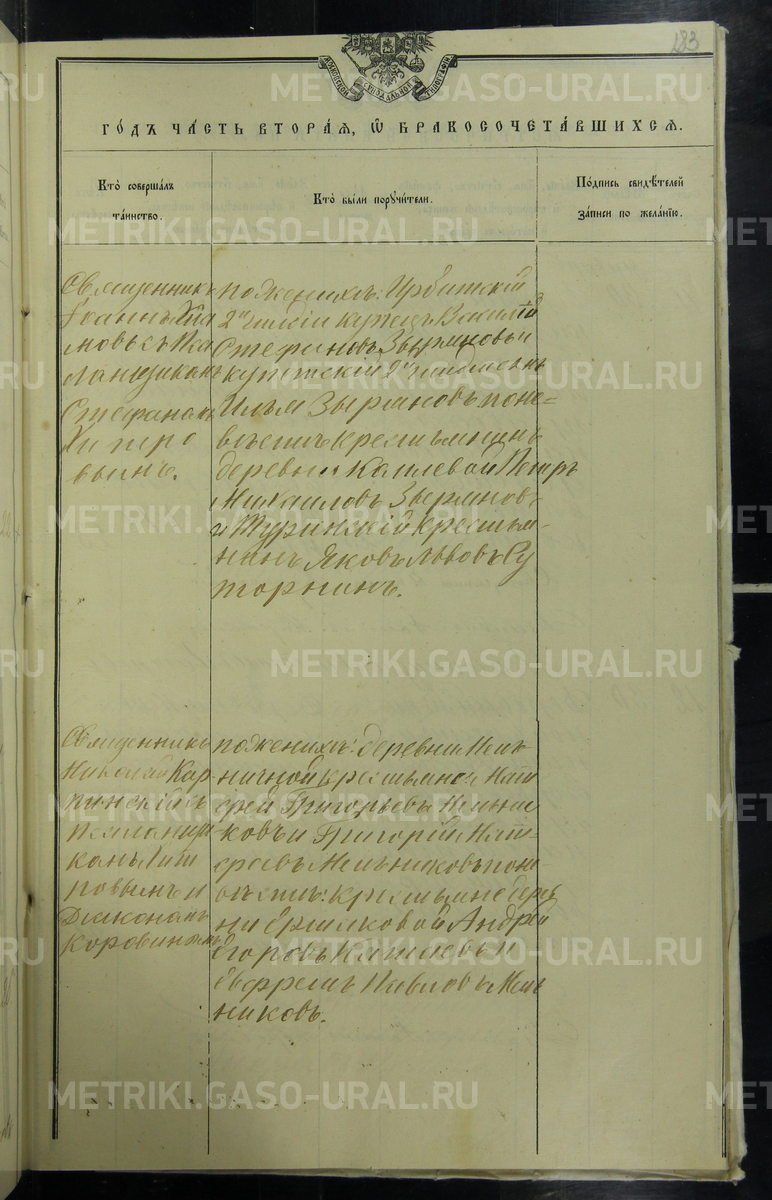 183
ГО́ДЪ ЧА́СТЬ ВТОРА́Я, Ѿ БРАКОСОЧЕТА́ВШИХСЯ.
Кто̀ соверша́лъ
та́инство.
Кто̀ бы́ли поручи́тели.
По́дпись свидѣ́телей
за́писи по жела́нїю.
Священникъ
Іоаннъ
новъ съ Пса
ломщикомъ
Стефаномъ
Хитро
вымъ.
по женихѣ: Ирбитскій
2й гильдіи купецъ Василій
Стефановъ Зыряновъ и
купетскій
Илья Зыряновъ по не-
вѣстѣ: крестьянинъ
деревни Каплевой Петръ
Михаиловъ Зыряновъ
и Туринскій крестья-
нинъ Яковъ Львовъ Су
торминъ.
Священникъ
Николай Кар
пинскій съ
псаломщи
комъ
повымъ и
Діякономъ
Коровинымъ
по женихѣ: деревни Мель
ничной крестьяне
Григорьевъ Мельни
ковъ и Григорій
Мельниковъ по не
вѣстѣ: крестьяне дерев
ни Ермаковой Андрей
Егоровъ и
Ефремъ Павловъ Мель
никовъ.
METRIKI.GASO-URAL.RU